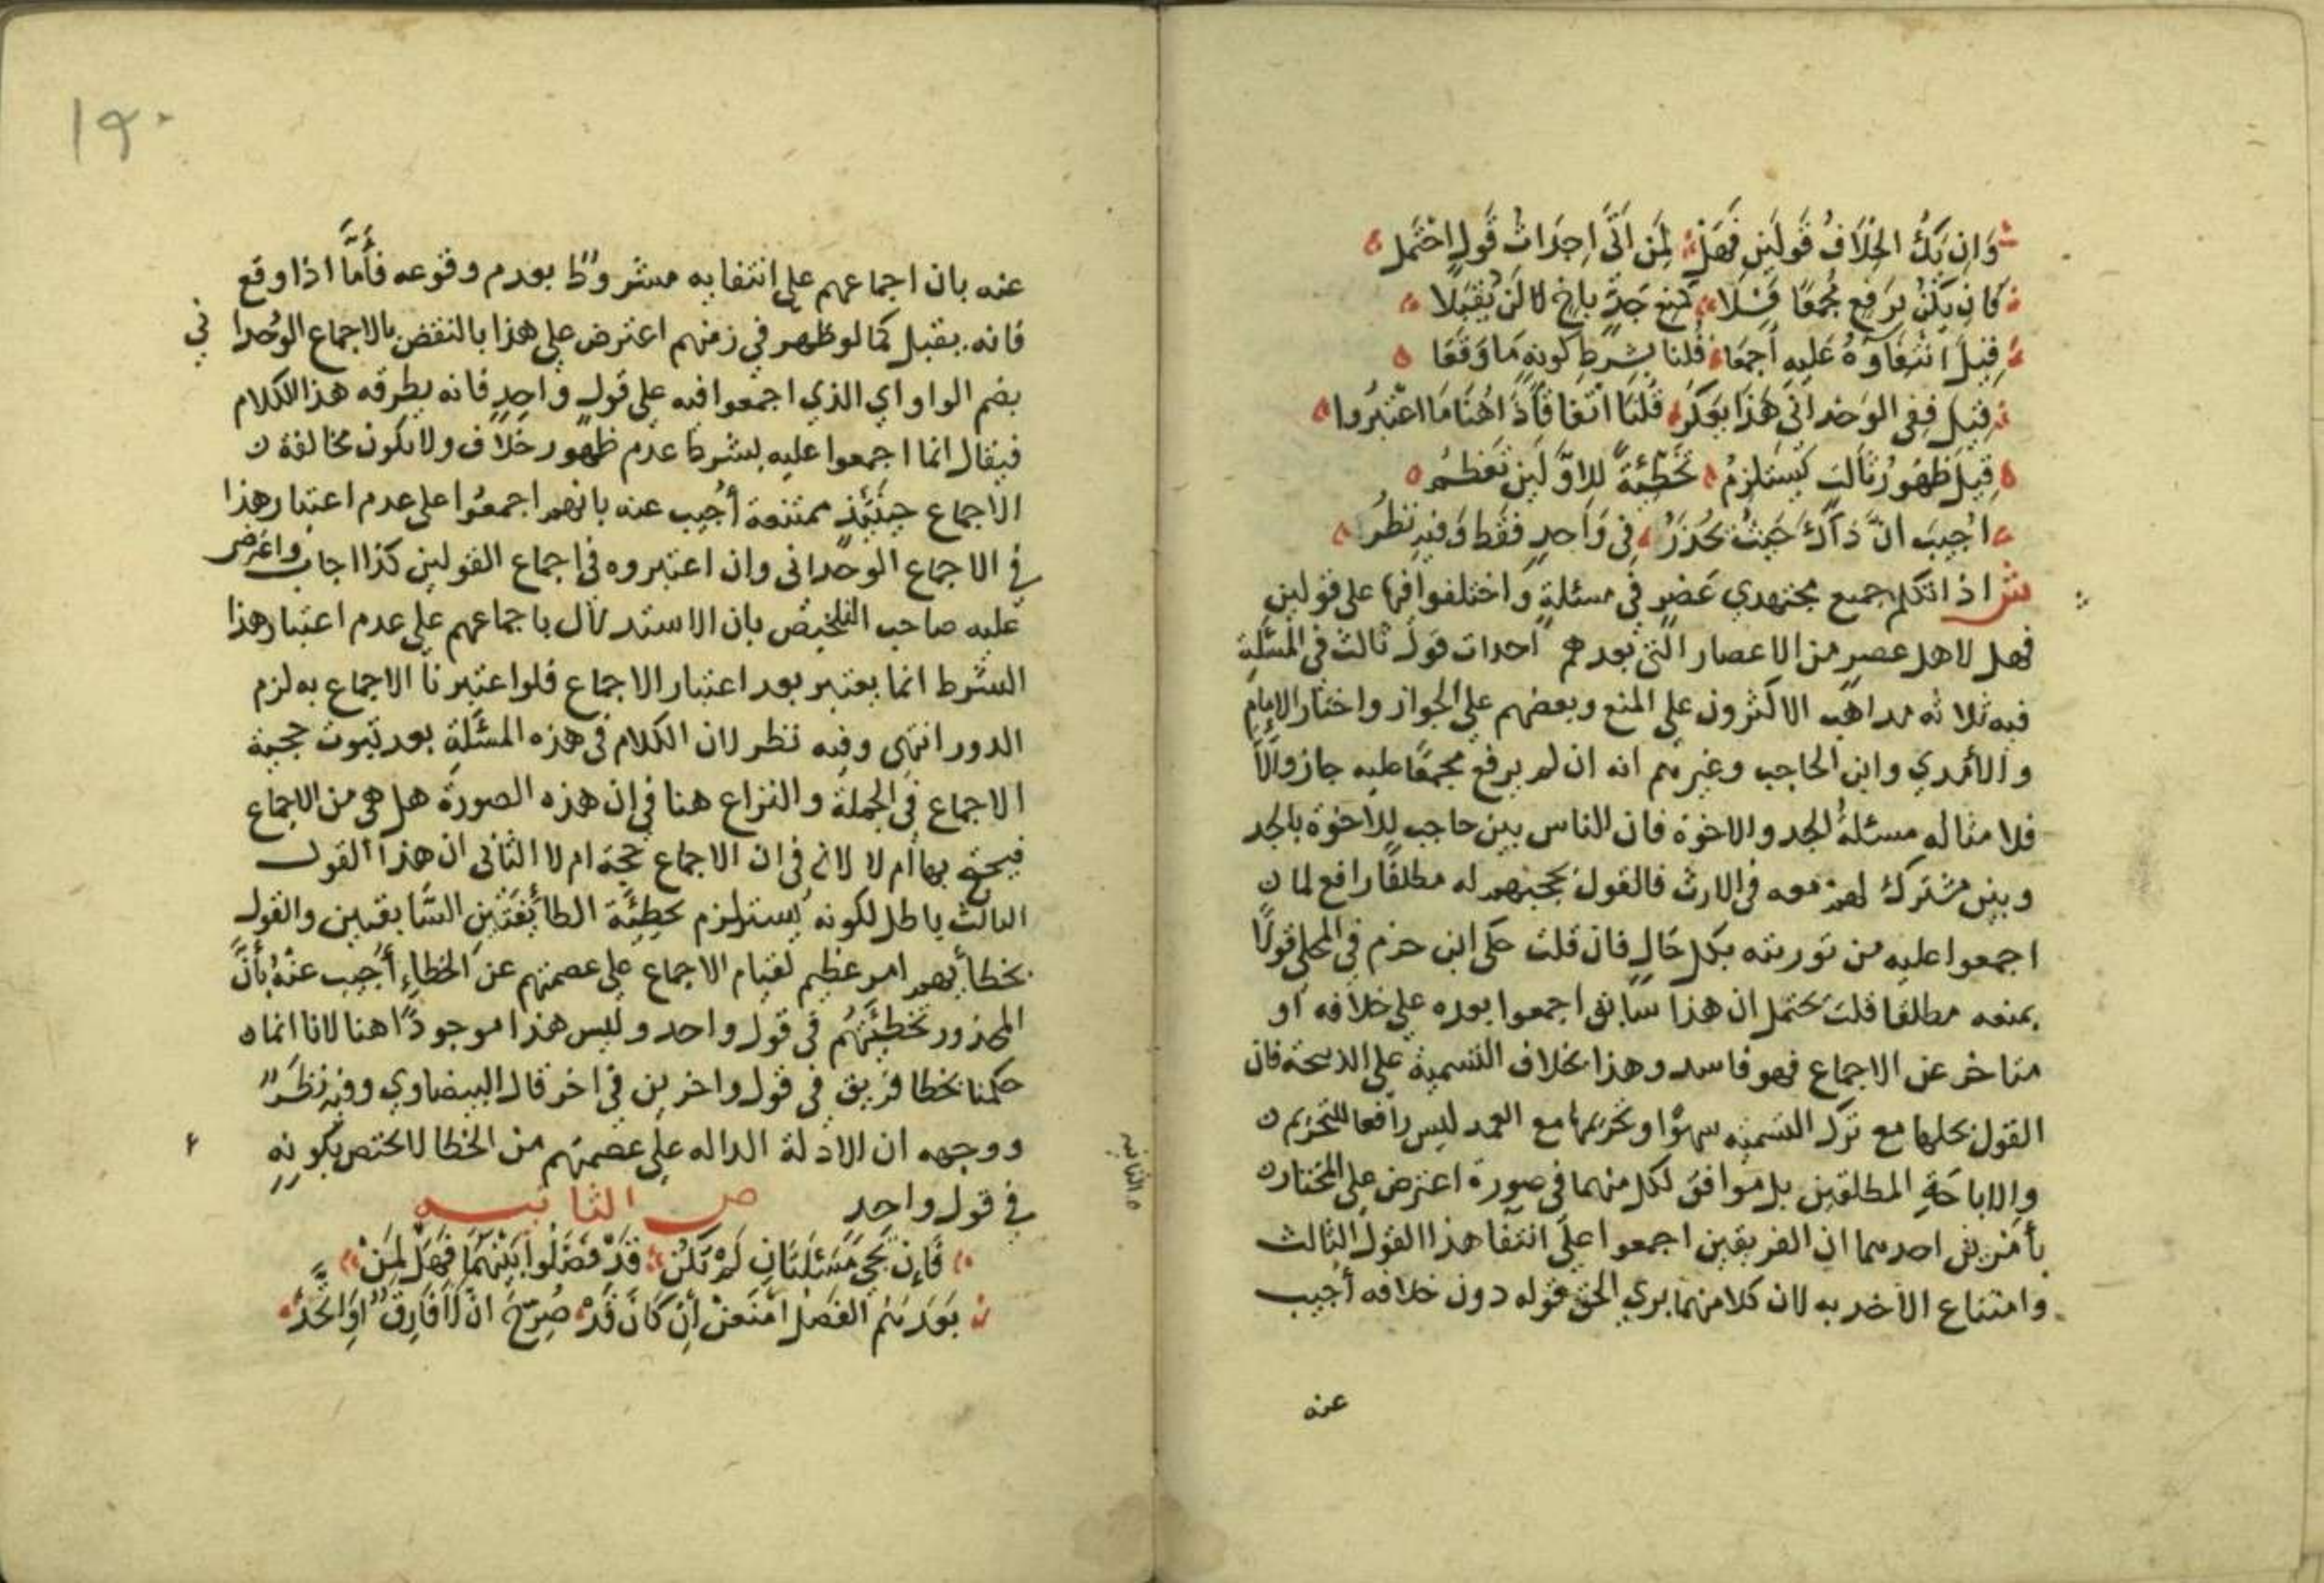 وَاِن يَكُ الخِلَافُ قَولَينِ فَهَلْ لِمَن اَتَى اِحدَاثُ قَولٍ اِحْتَمل
فَاِن يَكُنْ يرَفعِ مُجمَعًا فَلَا كمنع جَدٍّ باخٍ لا لَنْ يُقبَلا
قِيلَ انتِفَاوُهُ عَليه اَجمَعَا قُلنا بِشَرطِ كَونِهِ مَا وَقَعَا
قِيل فِفي الوَحدانى هَذَا يَعكُر قُلنَا اتّفاقًا ذَا هُنَا مَا اعْتَبَرُوا
قِيلَ ظهُورُ ثَالث يَستَلزِمُ تَخْطِئةً لِلاوَّلَينِ تَعظمُ
اُجيبَ انَّ ذَاكَ حَيثُ يُحْذَرُ في وَاحدٍ فقَط وَفيهِ نَظرُ
ش اذا تكلم جميع مجتهدي عَصرٍ في مسئلةٍ واختلفوا فيها على قولين
فهل لاهل عصرٍ من الاعصار التي بعدهم احداث قول ثالث في المسئلة
فيه ثلاثه مداهب الاكثرون على المنع وبعضهم على الجواز واختار الامام
والآمدي وابن الحاجب وغيرهم انه ان لم يرفع مجمعًا عليه جاز والّا
فلا مثاله مسئلةُ الجد والاخوة فان الناس بين حاجب للاخوة بالجد
وبين مشترك لهم معه في الارث فالقول بحجبهم له مطلقًا رافع لما
اجمعوا عليه من توريثه بكل حَالٍ فان قلت حكى ابن حزم في المحلى قولًا
بمنعه مطلقا قلت يحتمل ان هذا سَابق اجمعوا بعده على خلافه او
متاخر عن الاجماع فهو فاسد وهذا بخلاف التسمية على الذبيحة فان
القول بحلها مع ترك التسميه سهوًا وتحريمها مع العمد ليس رافعا للتحريم
والاباحَةِ المطلقين بل موافق لكل منهما في صورة اعترض على المختار
بأمرين احدهما ان الفريقين اجمعوا على انتفا هذا القول الثالث
وامتناع الاخذ به لان كلا منهما يرى الحق قوله دون خلافه أجيب
عنه
١٩٠
عنه بان اجماعهم على انتفايه مشروطٌ بعدم وقوعه فأمَّا اذا وقع
فانه يقبل كما لو ظهر في زمنهم اعترض على هذا بالنقض بالاجماع الوُحدا ني
بضم الواو اي الذي اجمعوا فيه على قول واحدٍ فانه يطرقه هذا الكلام
فيقال انما اجمعوا عليه بشرط عدم ظهور خلاف ولا يكون مخالفة
الاجماع حينئذ ممتنعة أجيب عنه بانهم اجمعُوا على عدم اعتبار هذا
في الاجماع الوحداني وان اعتبروه في اجماع القولين كذا اجاب واعترض
عليه صاحب التلخيص بان الاستدلال باجماعهم على عدم اعتبار هذا
الشرط انما يعتبر بعد اعتبار الاجماع فلو اعتبرنا الاجماع به لزم
الدور انتهى وفيه نظر لان الكلام في هذه المسئلةِ بعد ثبوت حجية
الاجماع في الجملة والنزاع هنا في ان هذه الصورة هل هي من الاجماع
فيحتج بها أم لا لا في ان الاجماع حجة ام لا الثاني ان هذا القول
الثالث باطل لكونه يستلزم تخطِئَة الطائِفَتَينِ السَّابقين والقول
بخطأيهم امر عظيم لقيام الاجماع على عصمتهم عن الخطاءِ أُجيب عنهُ بأنَّ
المحذور تخطِئَتُهُم في قول واحد وليس هذا موجودًا هنا لانا انما
حكمنا بخطا فريق في قول واخرين في اخر قال البيضاوي وفيه نظَرٌ
ووجهه ان الادلة الداله على عصمتهم من الخطا لا تختص بكونِهِ
في قول واحد ص الثانيه
فَإِن تَجي مَسْئلتَانِ لَمْ تكُن قَدْ فَصَّلُوا بَينَهُمَا فَهَل لِمَنْ
بَعدَهُم الفَصْل امْنَعنْ اِنْ كَانَ قَدْ صُرِّحَ انْ لَا فَارِقٌ اوِ اتَّحَدْ